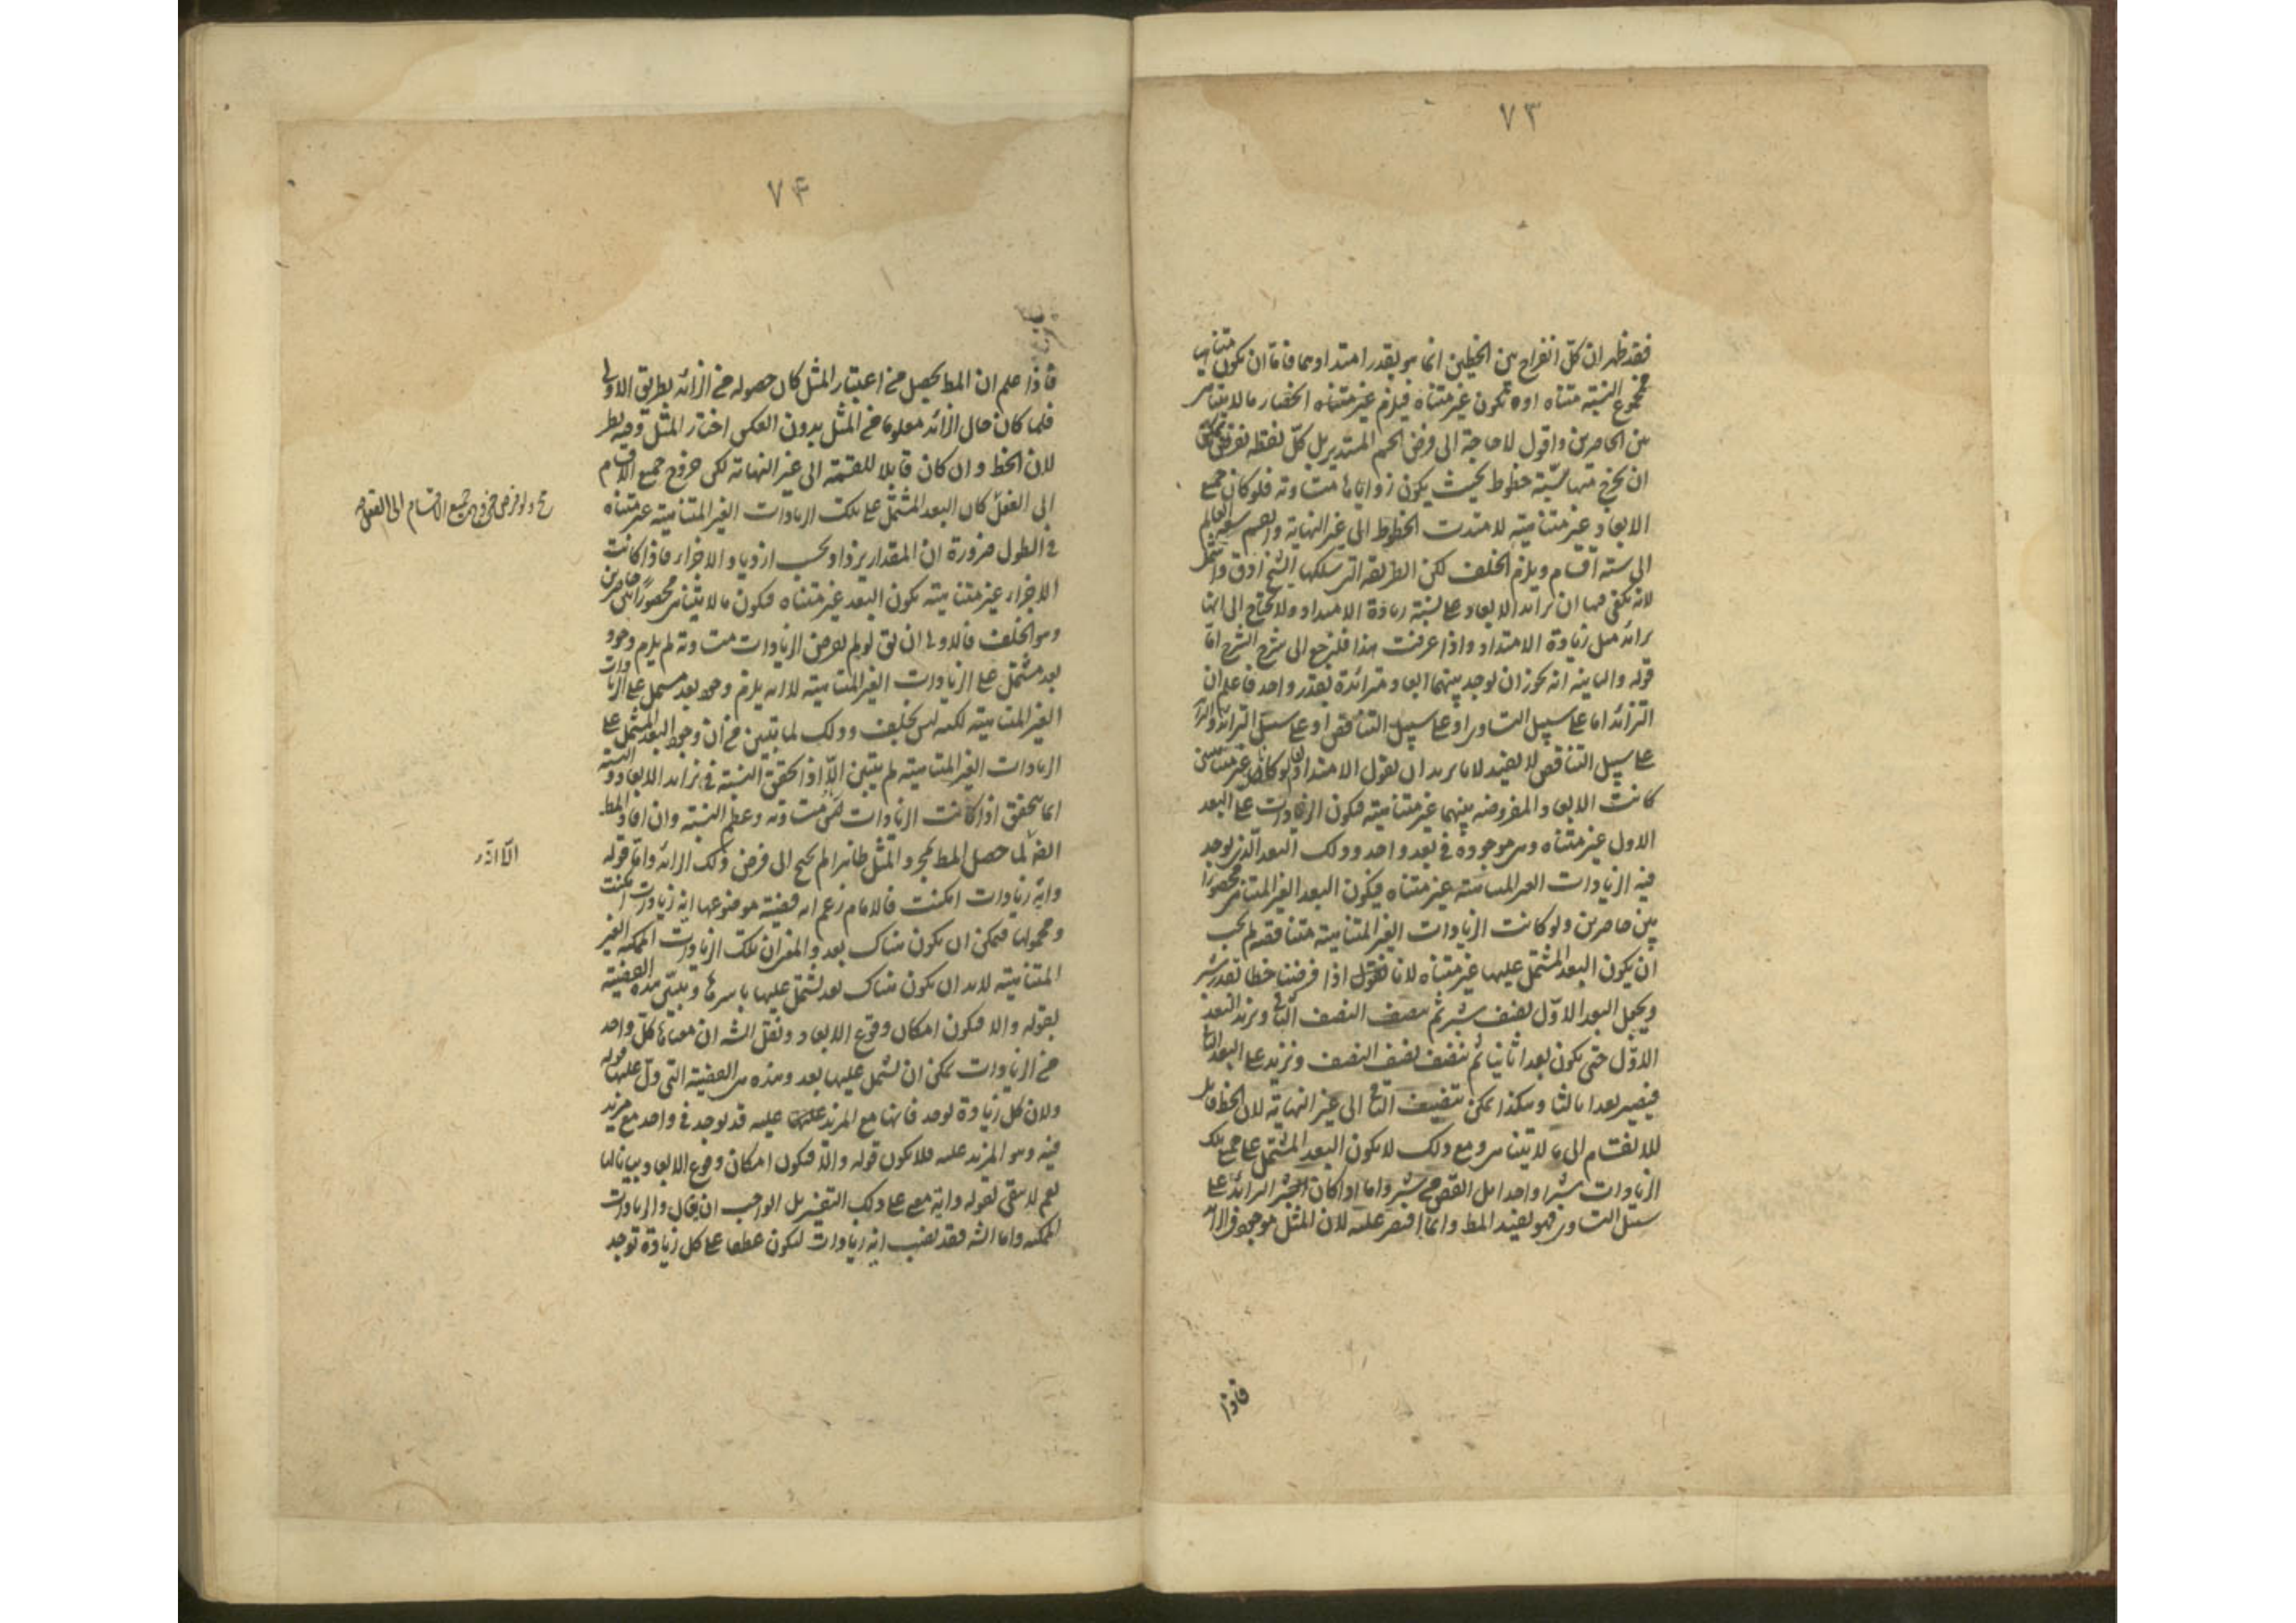 ٧٣
فقد ظهر ان كلّ انفراج بين الخطين انما هو بقدر امتدادهما فاما ان يكون متناهيا
فمجموع النسبة متناه او يكون غير متناه فيلزم غير متناه انحصار ما لا يتناهى
بين الحاصرين واقول لا حاجة الى فرض الجسم المستدير بل كلّ نقطة نفرض يمكن
ان يخرج منها ستة خطوط بحيث يكون زواياها متساوية فلو كان جميع
الابعاد غير متناهية لامتدت الخطوط الى غير النهاية وانقسم سعة العالم
الى ستة اقسام ويلزم الخلف لكن الطريقة التى سلكها الشيخ ادق واشمل
لانه يكفى فيها ان تزايد الابعاد على نسبة زيادة الامتداد ولا يحتاج الى
تزايد مثل زيادة الامتداد واذا عرفت هذا فلنرجع الى شرح الشرح اما
قوله والثانية انه يجوز ان يوجد بينهما ابعاد متزائدة بقدر واحد فاعلم ان
التزائد اما على سبيل التساوى او على سبيل التناقص او على سبيل التزائد والتزائد
على سبيل التناقص لا يفيد لانا نريد ان نقول الامتدادان لو كانا غير متناهيين
كانت الابعاد المفروضة بينهما غير متناهية فيكون الزيادات على البعد
الاول غير متناه وهى موجودة فى بعد واحد وذلك البعد الذى يوجد
فيه الزيادات الغير المتناهية غير متناه فيكون البعد الغير المتناهى محصورا
بين حاصرين ولو كانت الزيادات الغير المتناهية متناقصة لم يجب
ان يكون البعد المشتمل عليها غير متناه لانا نقول اذا فرضنا خطا بقدر شبر
ويجعل البعد الاوّل نصف شبر ثم ننصف النصف الثانى ونزيد البعد
الاوّل حتى يكون بعدا ثانيا ثم ننصف نصف النصف ونزيد على البعد الثانى
فيصير بعدا ثالثا وهكذا يمكن تنصيف الباقى الى غير النهاية لان الخط قابل
للانقسام الى ما لا يتناهى ومع ذلك لا يكون البعد المشتمل على جميع تلك
الزيادات شبرا واحدا بل انقص من شبر واما اذا كان الجزء الزائد على
سبيل التساوى فهو يفيد المط وانما اقتصر عليه لان المثل موجود فى الزائد
فاذا
٧٤
فاذا علم ان المط يحصل من اعتبار المثل كان حصوله من الزائد بطريق الاولى
فلما كان حال الزائد معلوما من المثل بدون العكس اختار المثل وفيه نظر
لان الخط وان كان قابلا للقسمة الى غير النهاية لكن خروج جميع الاقسام
الى الفعل كان البعد المشتمل على تلك الزيادات الغير المتناهية غير متناه
فى الطول ضرورة ان المقدار يزداد بحسب ازدياد الاجزاء فاذا كانت
الاجزاء غير متناهية يكون البعد غير متناه فيكون ما لا يتناهى محصورا بين حاصرين
وهو الخلف فالاولى ان يق لو لم نفرض الزيادات متساوية لم يلزم وجود
بعد مشتمل على الزيادات الغير المتناهية لانه يلزم وجود بعد مشتمل على الزيادات
الغير المتناهية لكنه ليس بخلف وذلك لما تبين من ان وجود البعد المشتمل على
الزيادات الغير المتناهية لم يتبين الّا اذا تحقق النسبة فى تزايد الابعاد والنسبة
انما يتحقق اذا كانت الزيادات متساوية وعظم النسبة وان افاد المط
لما حصل المط بمجرد المثل ظاهرا لم يحتج الى فرض ذلك الزائد واما قوله
واية زيادات امكنت فالامام زعم انه قضية موضوعها اية زيادات امكنت
ومحمولها فيمكن ان يكون هناك بعد والمعنى ان تلك الزيادات الممكنة الغير
المتناهية لابد ان يكون هناك بعد يشتمل عليها باسرها ويتبين هذه القضية
بقوله والا فيكون امكان وقوع الابعاد ونقل الشه ان معناها كل واحد
من الزيادات يمكن ان يشتمل عليها بعد وهذه هى القضية التى دل عليها قوله
ولان كل زيادة توجد فانها مع المزيد عليه قد يوجد فى واحد مع مزيد
فيه وهو المزيد عليه فلا يكون قوله والا فيكون امكان وقوع الابعاد بيانا لها
نعم لا يبقى لقوله واية معنى على ذلك التفسير بل الواجب ان يقال والزيادات
الممكنة واما الشه فقد نصب اية زيادات ليكون عطفا على كل زيادة توجد
ح ولو فرض خروج جميع الاقسام الى الفعل